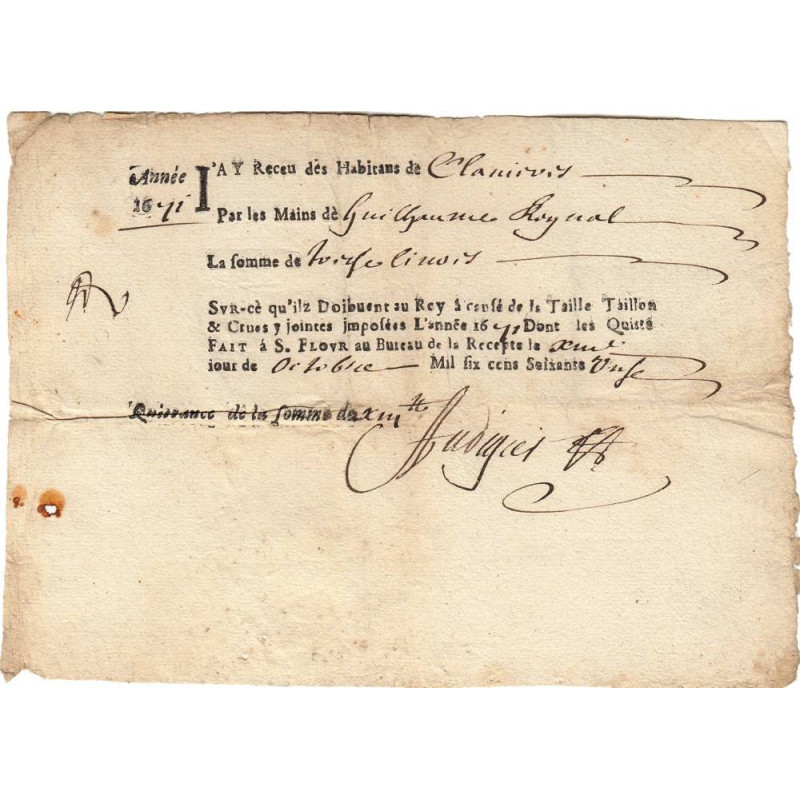 Année I'AY Receu dès Habitans de Clavieres
1671
Par les Mains dè Guilhaume Roynal
La somme de treize livres
SVR-cè qu'ilz Doibuent au Roy à causé de la Taille Taillon
& Crues y jointes jmposées L'année 1671 Dont les Quisté
FAIT à S. FLOVR au Bureau de la Recepte le xiiie
iour de Octobre Mil six cens Soixante Unse
Quittance de la somme de xiii tt
Audigier